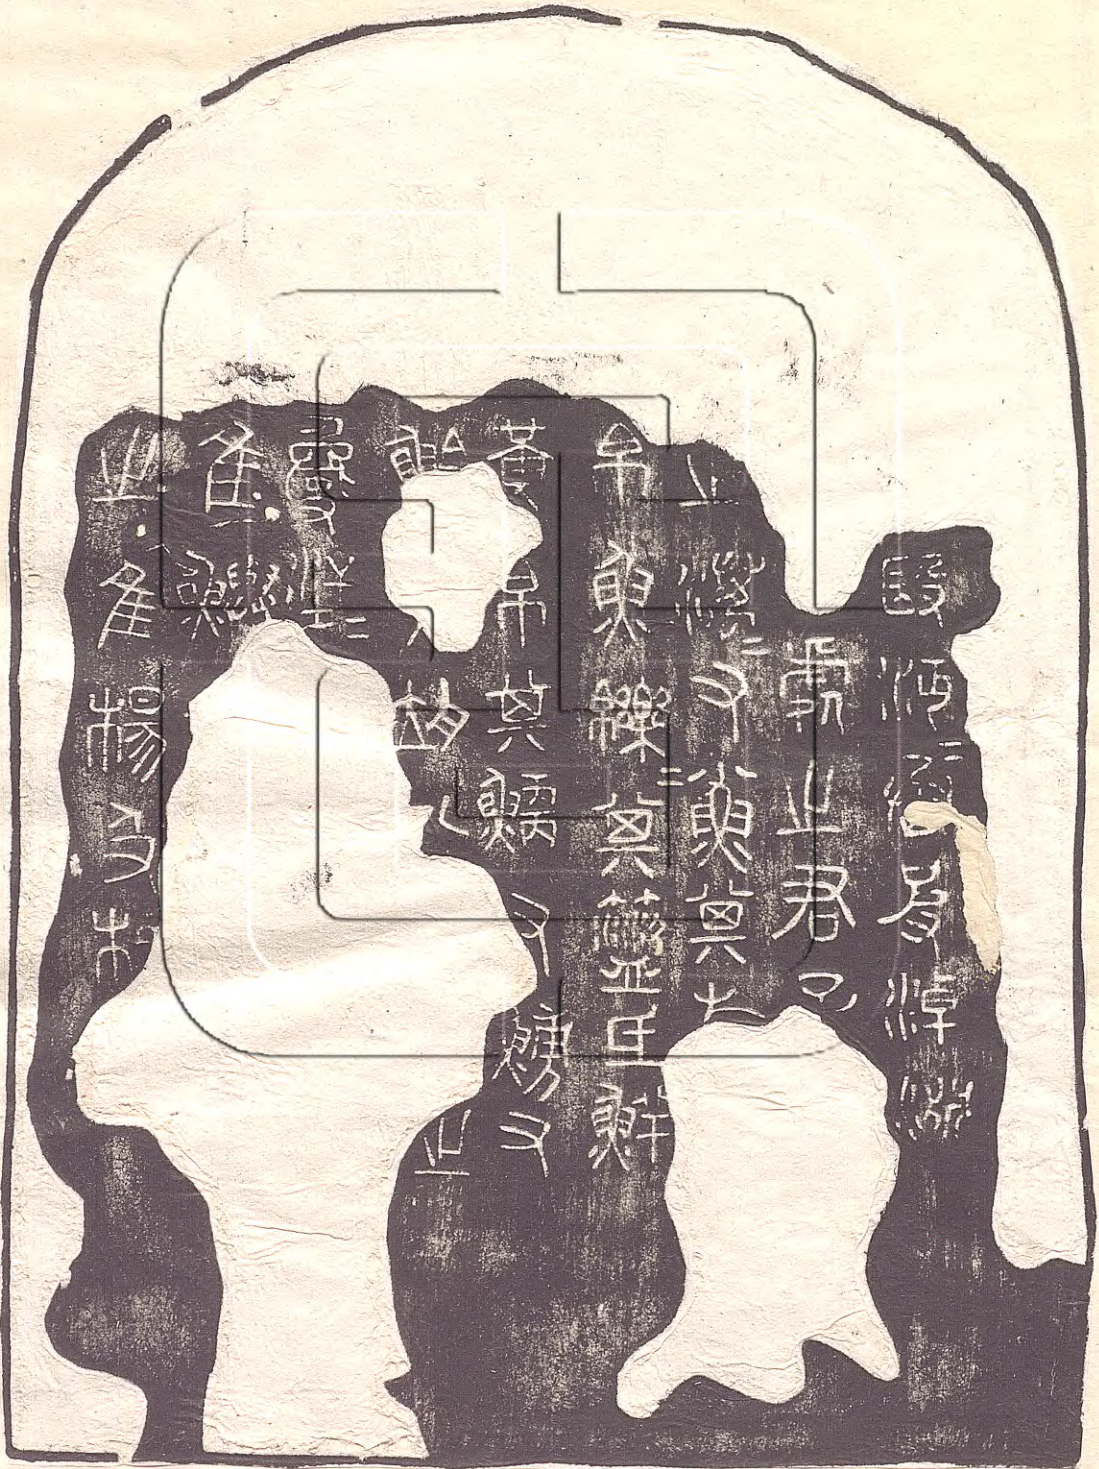 殹沔＝烝皮淖淵
處之君子
之澫＝又小魚＝其
帛魚皪＝其盜氐鮮
黃帛其鯾又鰟又
鮊之
夐
隹鱮
之隹楊及柳